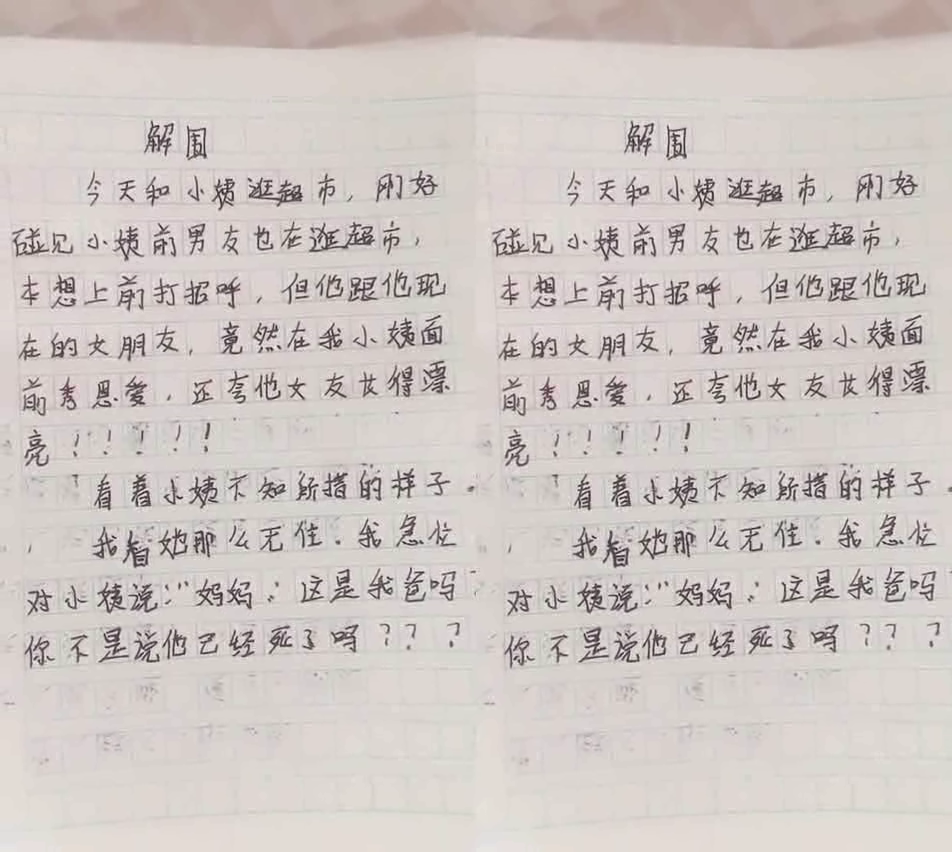 解围
今天和小姨逛超市，刚好
碰见小姨前男友也在逛超市，
本想上前打招呼，但他跟他现
在的女朋友，竟然在我小姨面
前秀恩爱，还夸他女友长得漂
亮！！！！！
看着小姨不知所措的样子。
我看她那么无住．我急忙
对小姨说：“妈妈：这是我爸吗
你不是说他已经死了吗？？？
解围
今天和小姨逛超市，刚好
碰见小姨前男友也在逛超市，
本想上前打招呼，但他跟他现
在的女朋友，竟然在我小姨面
前秀恩爱，还夸他女友长得漂
亮！！！！！
看着小姨不知所措的样子。
我看她那么无住．我急忙
对小姨说：“妈妈：这是我爸吗
你不是说他已经死了吗？？？